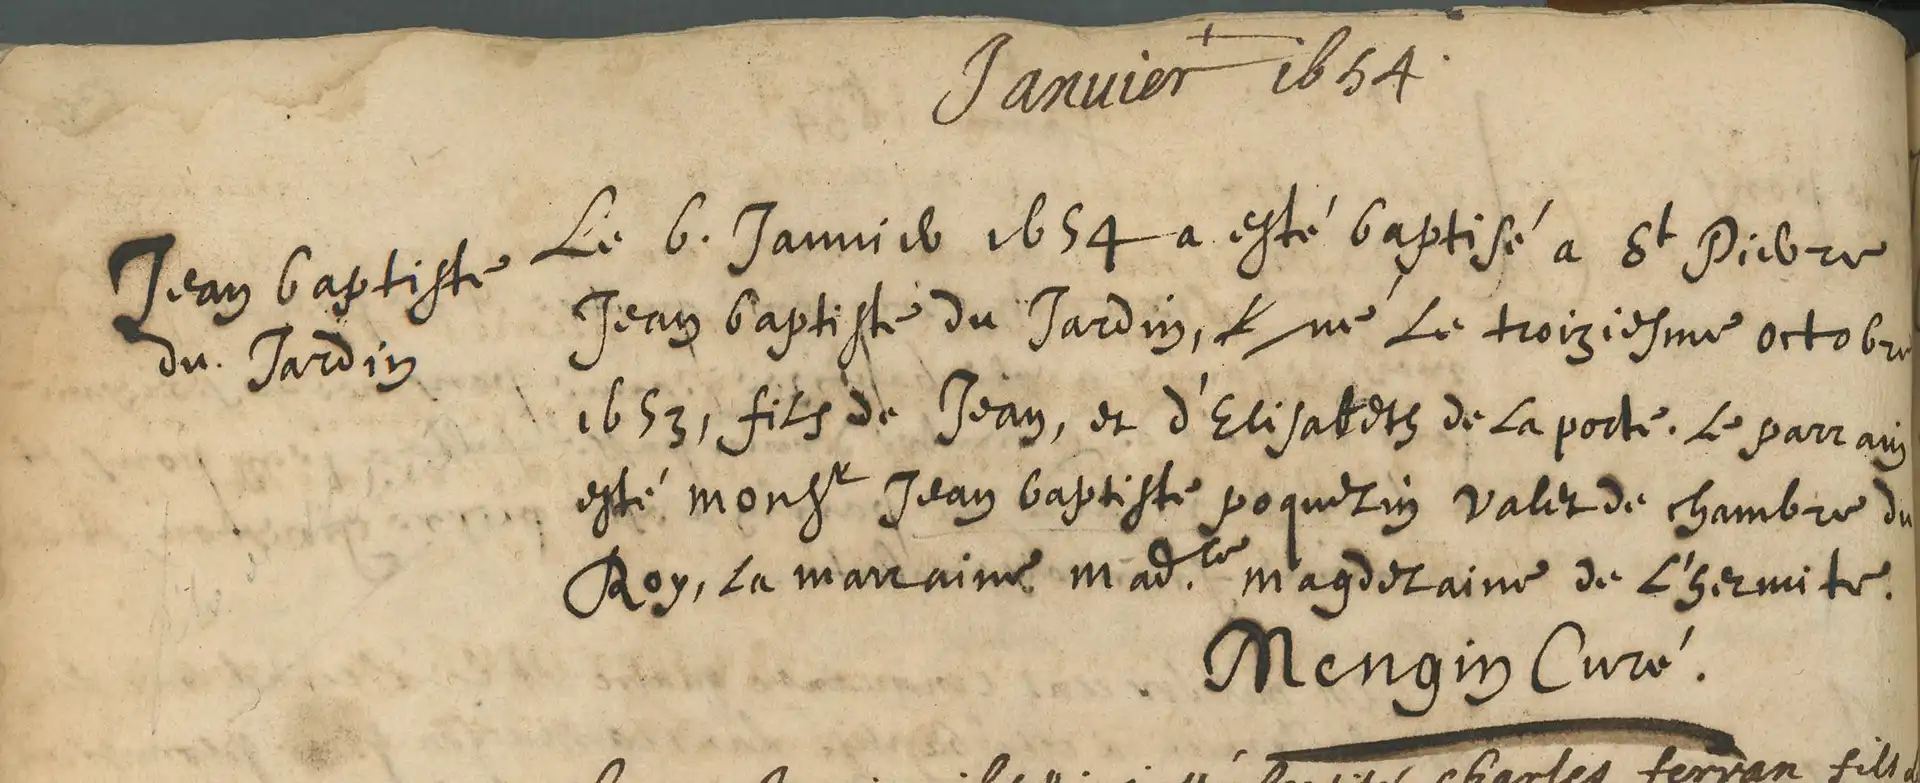 Janvier 1654.
Jean baptiste
du Jardin
Le 6. Januier 1654 a esté baptisé a St Pierre
Jean baptiste du Jardin, né Le troiziesme octobre
1653, fils de Jean, et d'Elisabeth de La porte. Le parrain
esté monsr Jean baptiste poquelin valet de chambre du
Roy, La marraine mad.le magdelaine de L'hermite.
Mengin Curé.
charles ferran fils